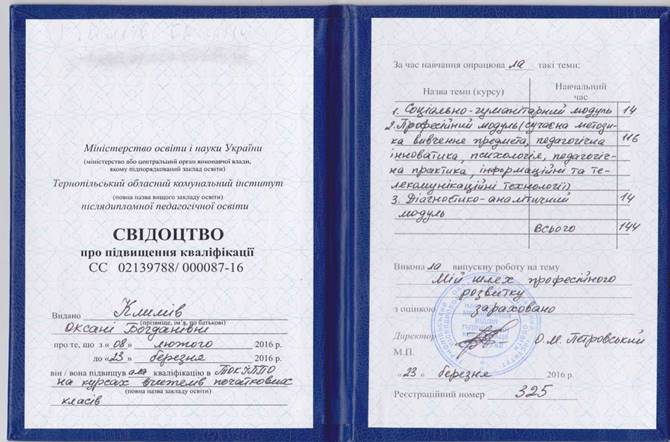 Міністерство освіти і науки України
(міністерство або центральний орган виконавчої влади,
якому підпорядкований заклад освіти)
Тернопільський обласний комунальний інститут
(повна назва вищого закладу освіти)
післядипломної педагогічної освіти
СВІДОЦТВО
про підвищення кваліфікації
СС 02139788/ 000087-16
Видано Климів
(прізвище, ім'я, по батькові)
Оксані Богданівні
про те, що з «08» лютого 2016 р.
до «23» березня 2016 р.
він / вона підвищув ала кваліфікацію в ТОКІППО
на курсах вчителів початкових
(повна назва закладу освіти)
класів
За час навчання опрацюва ла такі теми:
Назва теми (курсу) Навчальний
час
1. Соціально-гуманітарний модуль 14
2. Професійний модуль (сучасна методи-
ка вивчення предмета, педагогічна 116
інноватика, психологія, педагогіч-
на практика, інформаційні та те-
лекомунікаційні технології)
3. Діагностико-аналітичний 14
модуль
Всього 144
Викона ла випускну роботу на тему
Мій шлях професійного
розвитку
з оцінкою зараховано
Директор О.М. Петровський
М.П.
«23» березня 2016 р.
Реєстраційний номер 325